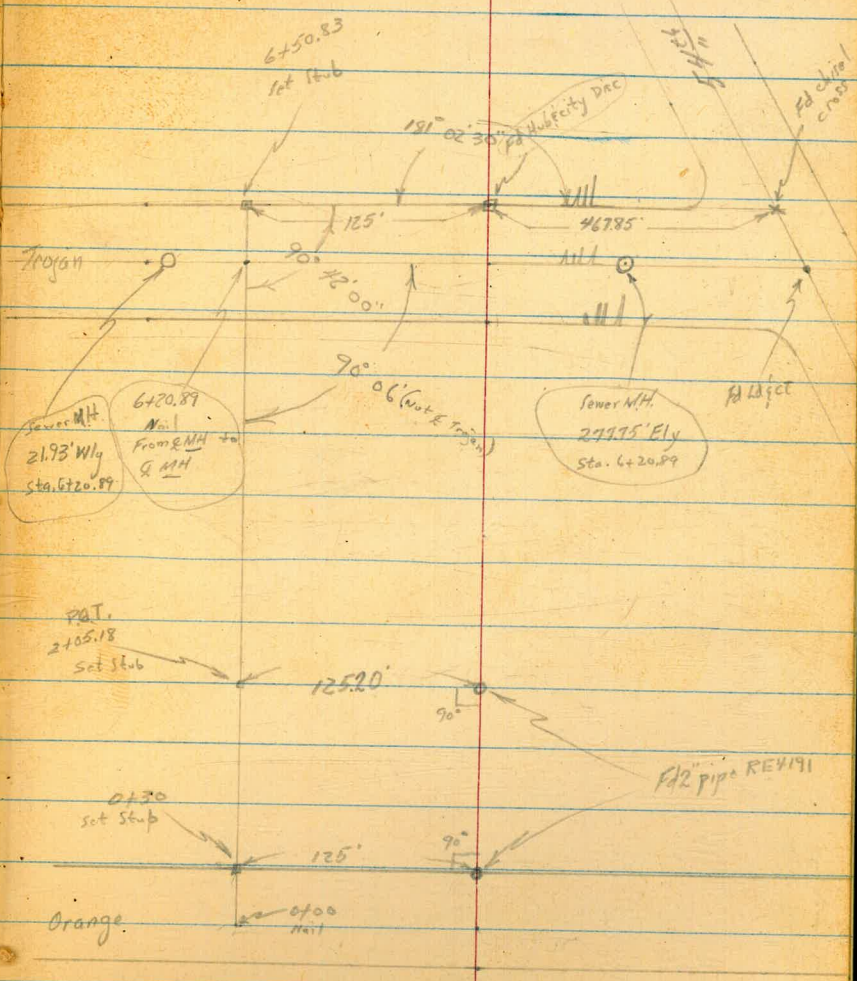 6+50.83
Set Stub
54th
Fd chisel
cross
181° 02' 30"
Fd Hub & City Disc
125'
467.85'
Trojan
90° 42' 00"
90° 06' (Not ⅊ Trojan)
Sewer M.H.
21.93' Wly
Sta. 6+20.89
6+20.89
Nail
From ⅊ MH to
⅊ MH
Sewer M.H.
277.75' Ely
Sta. 6+20.89
Fd Ld & CT
P.O.T.
2+05.18
Set Stub
125.20'
90°
Fd 2" pipe RE4191
0+30
Set Stub
125'
90°
Orange
0+00
Nail